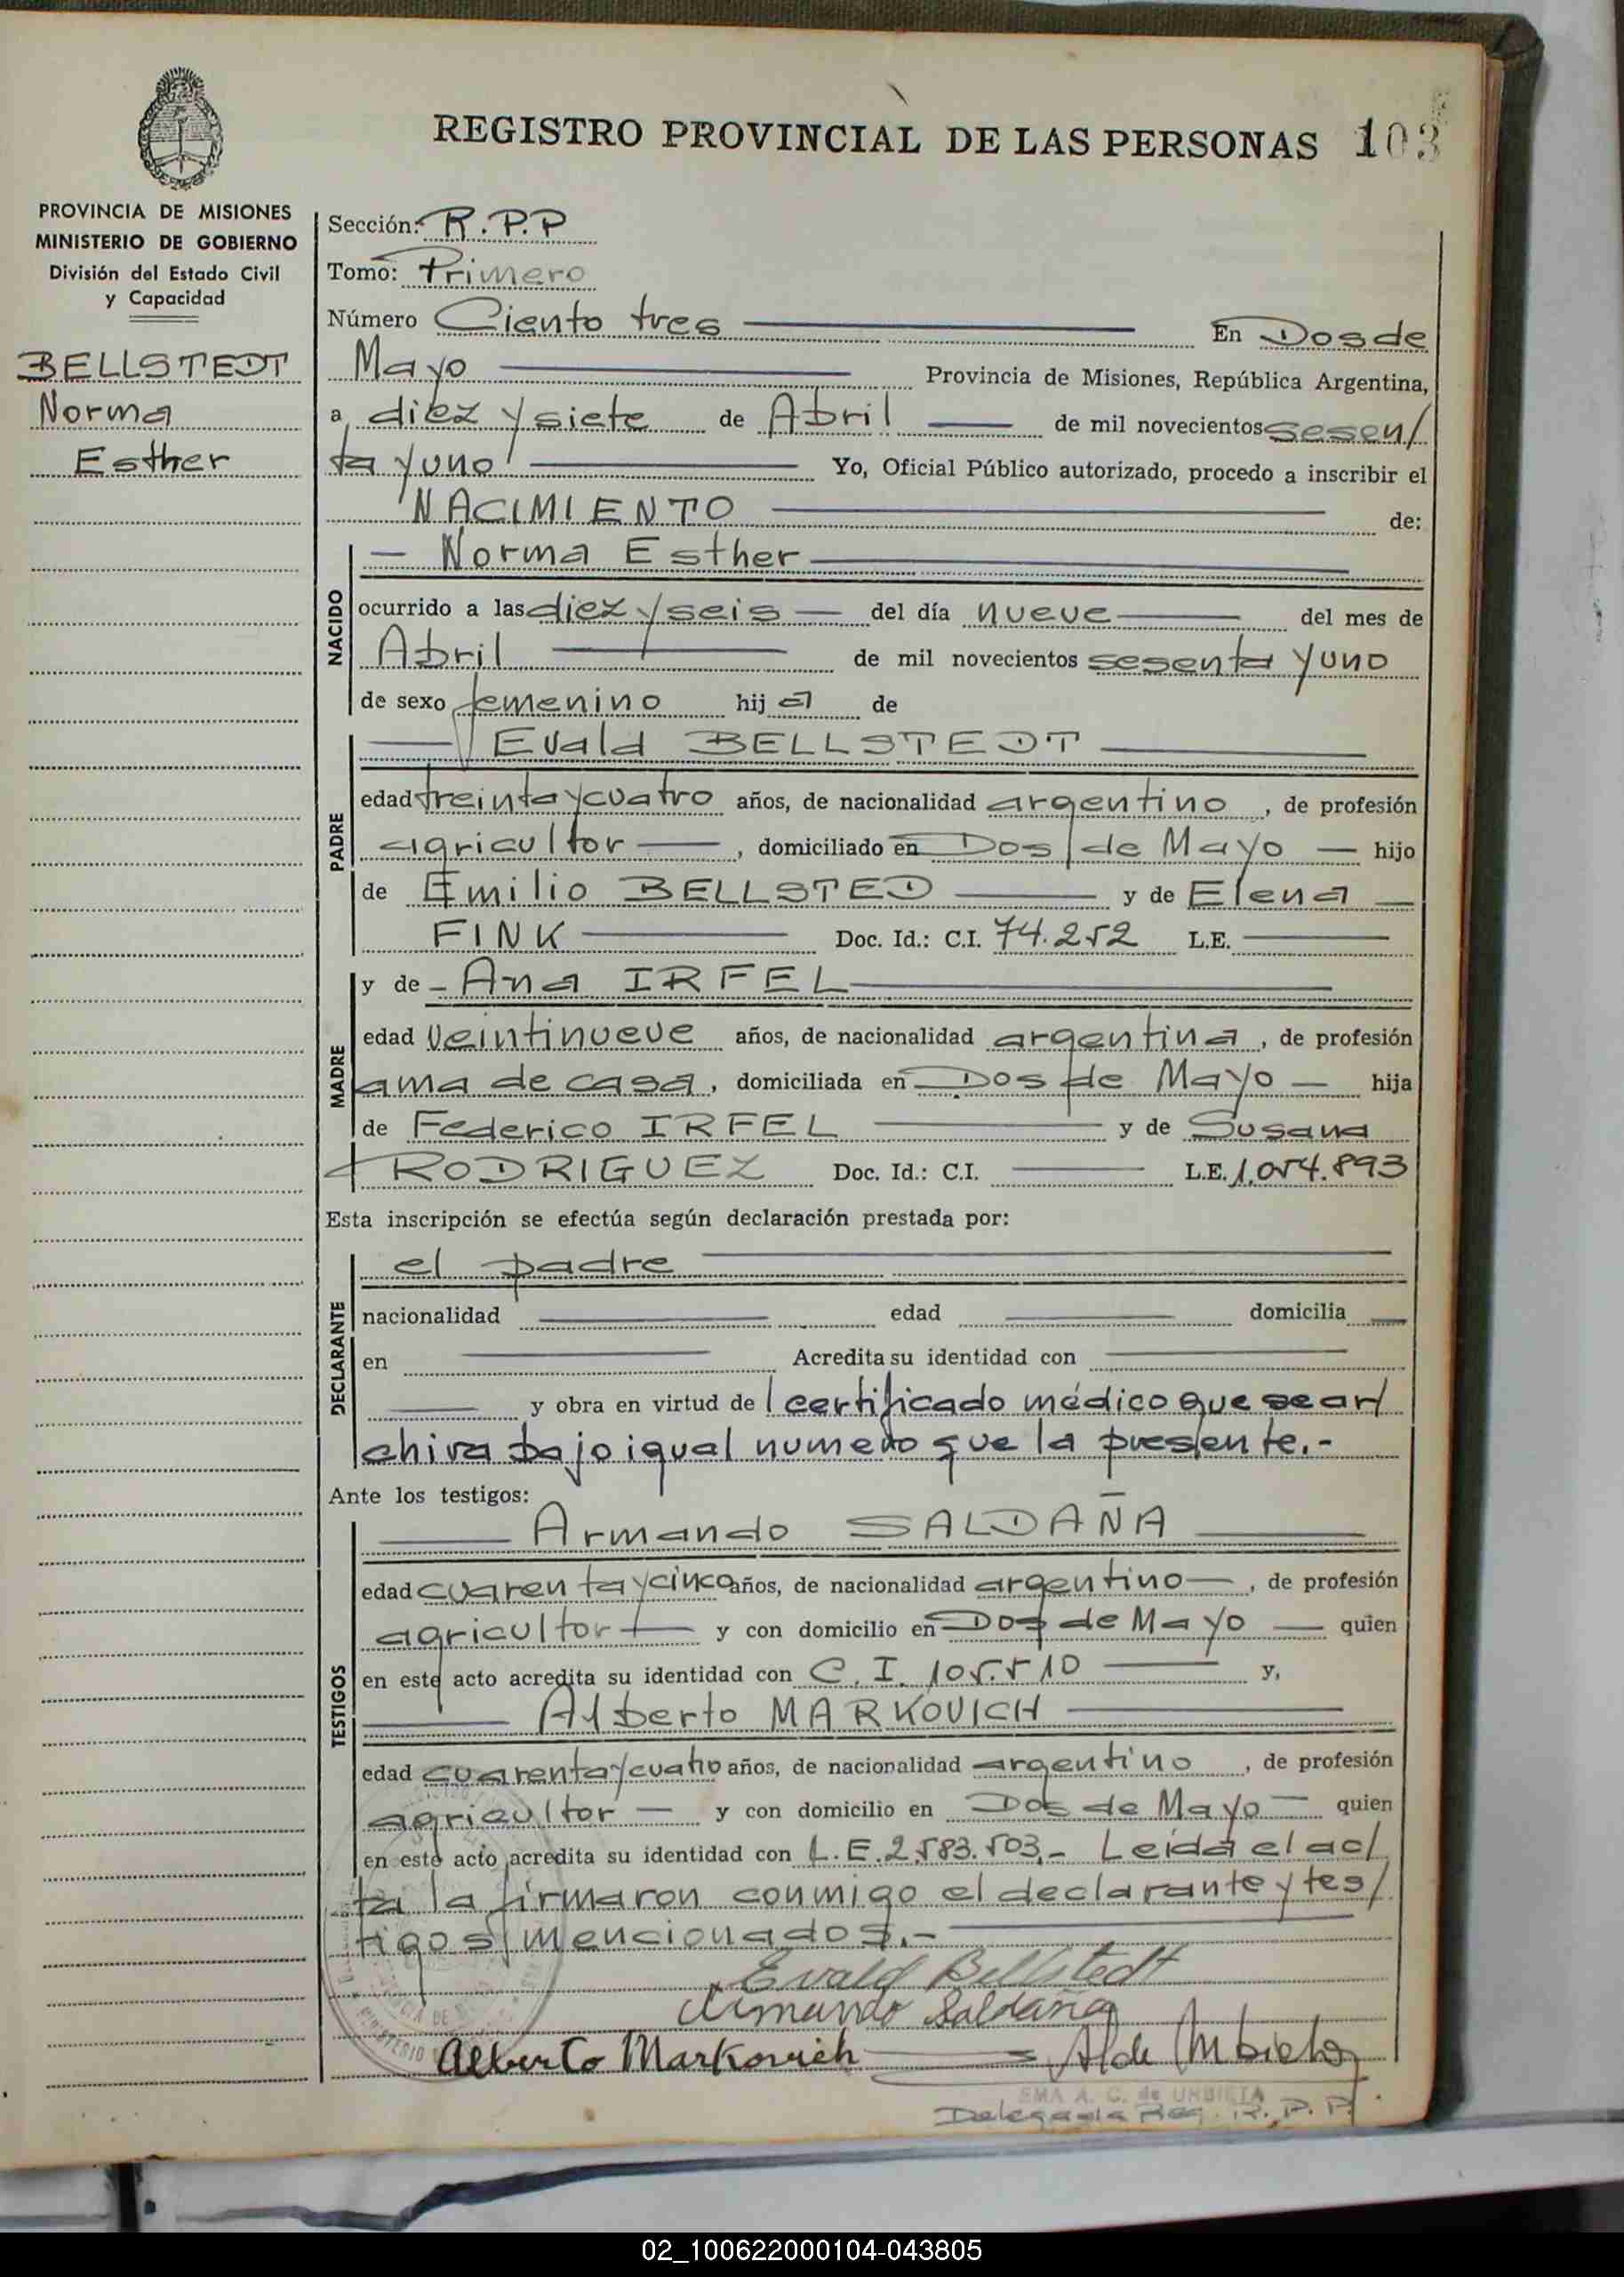 REGISTRO PROVINCIAL DE LAS PERSONAS 103
PROVINCIA DE MISIONES
MINISTERIO DE GOBIERNO
División del Estado Civil
y Capacidad
BELLSTEDT
Norma
Esther
Sección: R.P.P
Tomo: Primero
Número Ciento tres En Dos de
Mayo Provincia de Misiones, República Argentina,
a diez y siete de Abril de mil novecientos sesen/
ta y uno Yo, Oficial Público autorizado, procedo a inscribir el
NACIMIENTO de:
NACIDO
Norma Esther
ocurrido a las diez y seis del día nueve del mes de
Abril de mil novecientos sesenta y uno
de sexo femenino hija de
PADRE
Evald BELLSTEDT
edad treinta y cuatro años, de nacionalidad argentino, de profesión
agricultor, domiciliado en Dos de Mayo hijo
de Emilio BELLSTED y de Elena
FINK Doc. Id.: C.I. 74.252 L.E.
MADRE
y de Ana IRFEL
edad veintinueve años, de nacionalidad argentina, de profesión
ama de casa, domiciliada en Dos de Mayo hija
de Federico IRFEL y de Susana
RODRIGUEZ Doc. Id.: C.I. L.E. 1.054.893
Esta inscripción se efectúa según declaración prestada por:
DECLARANTE
el padre
nacionalidad edad domicilia
en Acredita su identidad con
y obra en virtud de l certificado médico que se ar/
chiva bajo igual numero que la presente.-
Ante los testigos:
TESTIGOS
Armando SALDAÑA
edad cuarenta y cinco años, de nacionalidad argentino, de profesión
agricultor y con domicilio en Dos de Mayo quien
en este acto acredita su identidad con C.I. 105.510 y,
Alberto MARKOVICH
edad cuarenta y cuatro años, de nacionalidad argentino, de profesión
agricultor y con domicilio en Dos de Mayo quien
en este acto acredita su identidad con L.E. 2.583.503.- Leída el ac/
ta la firmaron conmigo el declarante y tes/
tigos mencionados.-
Evald Bellstedt
Armando Saldaña
Alberto Markovich
EMA A. C. de URBIETA
Delegada Reg. R.P.P.
02_100622000104-043805